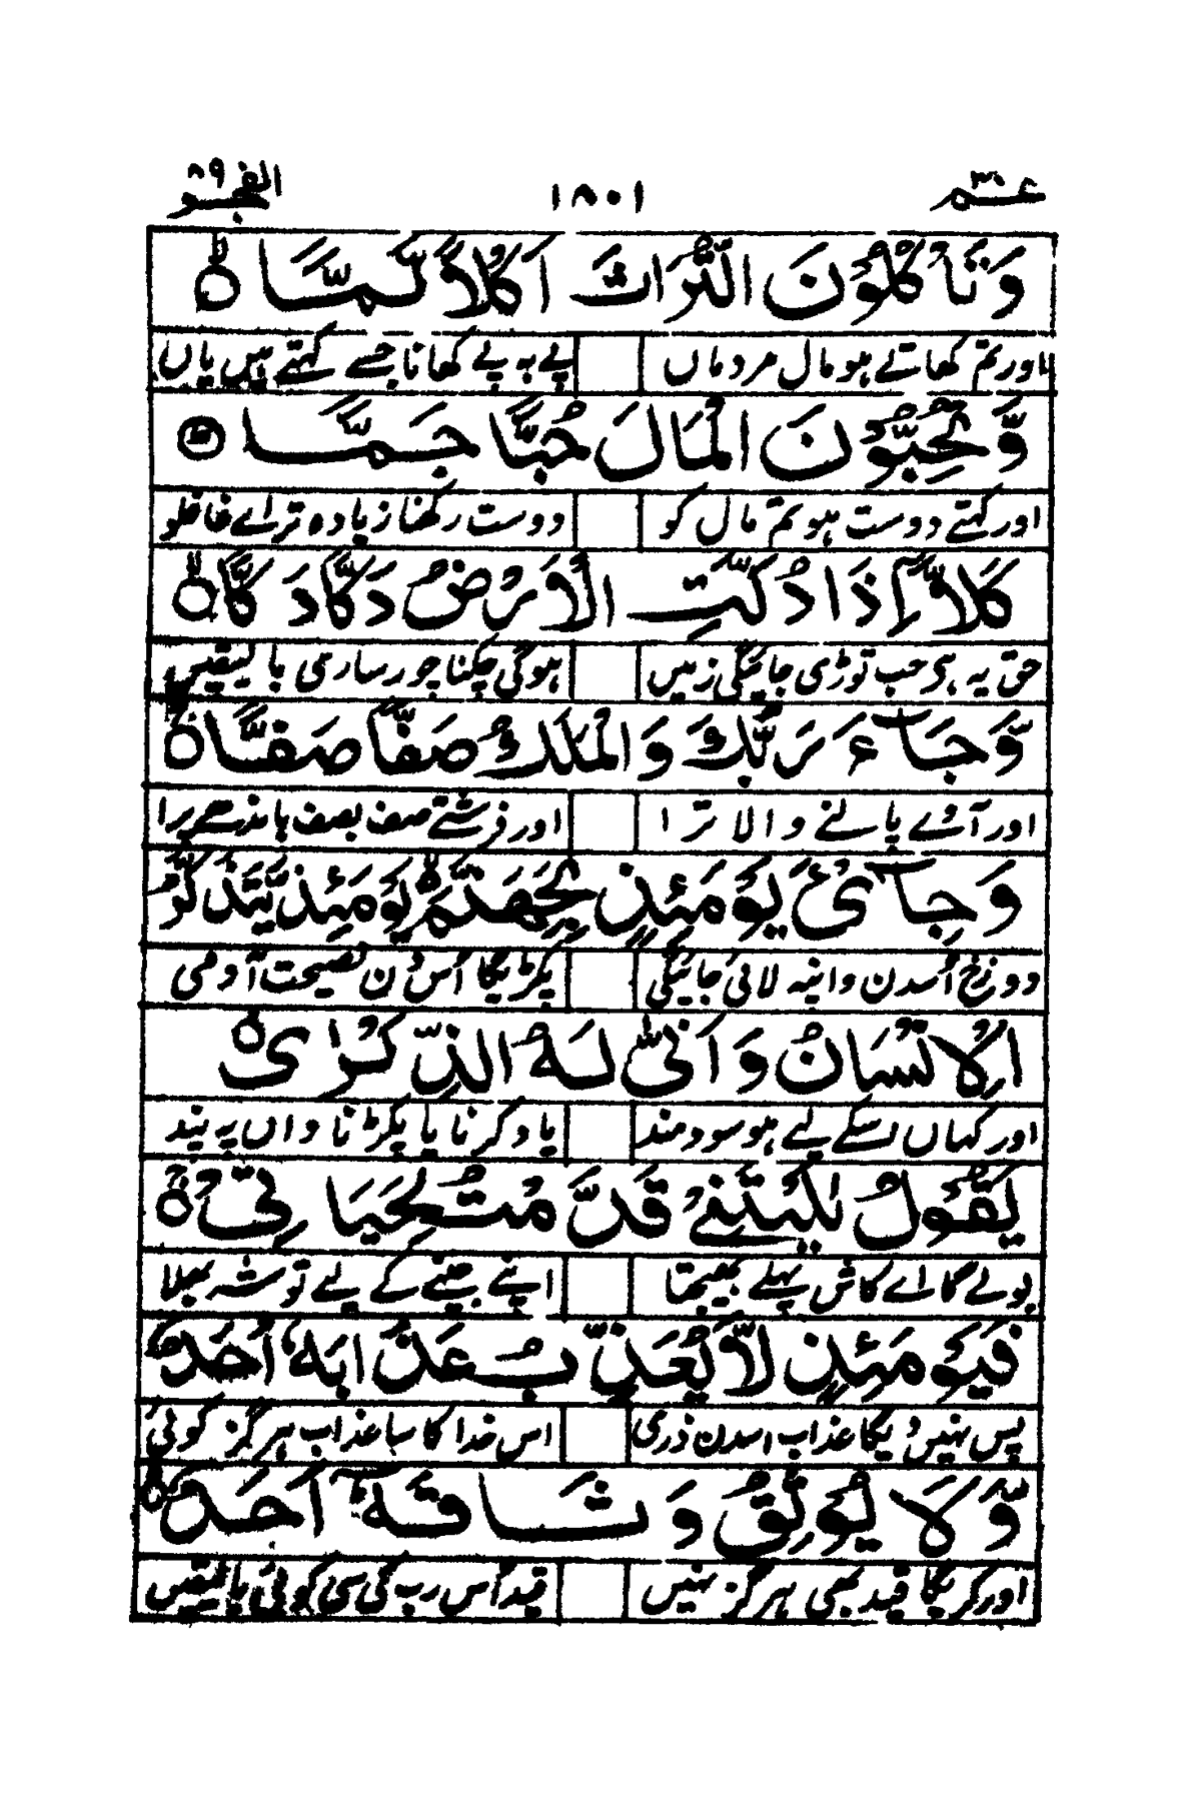 عـم ٣٠ ١٨٠١ الفجر ٨٩
وَتَأْكُلُوْنَ التُّرَاثَ اَكْلًا لَّمًّا ۙ
اور تم کھاتے ہو مال مردماں پے بہ پے کھانا جسے کہتے ہیں یاں
وَّتُحِبُّوْنَ الْمَالَ حُبًّا جَمًّا ؕ
اور رکھتے دوست ہو تم مال کو دوست رکھنا زیادہ تر اے غافلو
كَلَّاۤ اِذَا دُكَّتِ الْاَرْضُ دَكًّا دَكًّا ۙ
حق یہ ہی جب توڑی جائیگی زمیں ہوگی چکنا چور ساری بالیقیں
وَّجَآءَ رَبُّكَ وَالْمَلَكُ صَفًّا صَفًّا ۚ
اور آئے پالنے والا ترا اور فرشتے صف بصف باندھے پرا
وَجِایْٓءَ يَوْمَئِذٍۭ بِجَهَنَّمَ ۙ يَوْمَئِذٍ يَّتَذَكَّرُ
دوزخ اُسدن واں پہ لائی جائیگی پکڑیگا اُس دن نصیحت آدمی
الْاِنْسَانُ وَاَنّٰى لَهُ الذِّكْرٰى ؕ
اور کہاں اسکے لیے ہو سودمند یاد کرنا یا پکڑنا واں پہ پند
يَقُوْلُ يٰلَيْتَنِيْ قَدَّمْتُ لِحَيَاتِيْ ۚ
بولے گا اے کاش پہلے بھیجتا اپنے جینے کے لیے توشہ بھلا
فَيَوْمَئِذٍ لَّا يُعَذِّبُ عَذَابَهٗٓ اَحَدٌ ۙ
پس نہیں دیگا عذاب اسدن ذری اس خدا کا سا عذاب ہرگز کوئی
وَّلَا يُوْثِقُ وَثَاقَهٗٓ اَحَدٌ ؕ
اور کریگا قید بھی ہرگز نہیں قید اُس رب کی سی کوئی بالیقیں